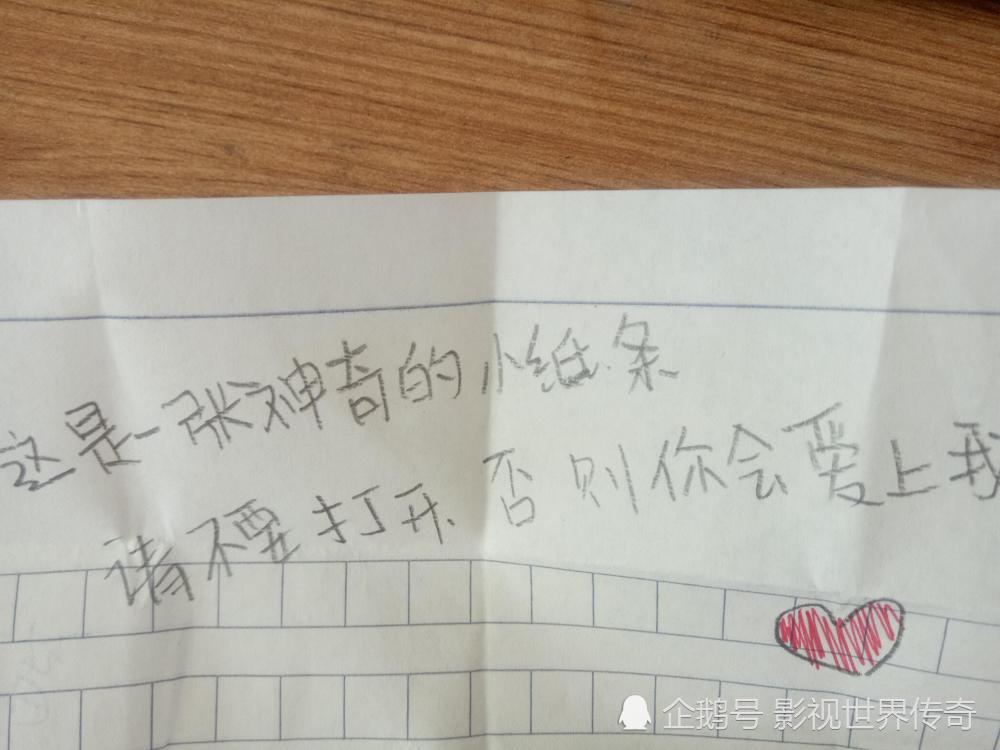 这是一张神奇的小纸条
请不要打开否则你会爱上我
企鹅号 影视世界传奇